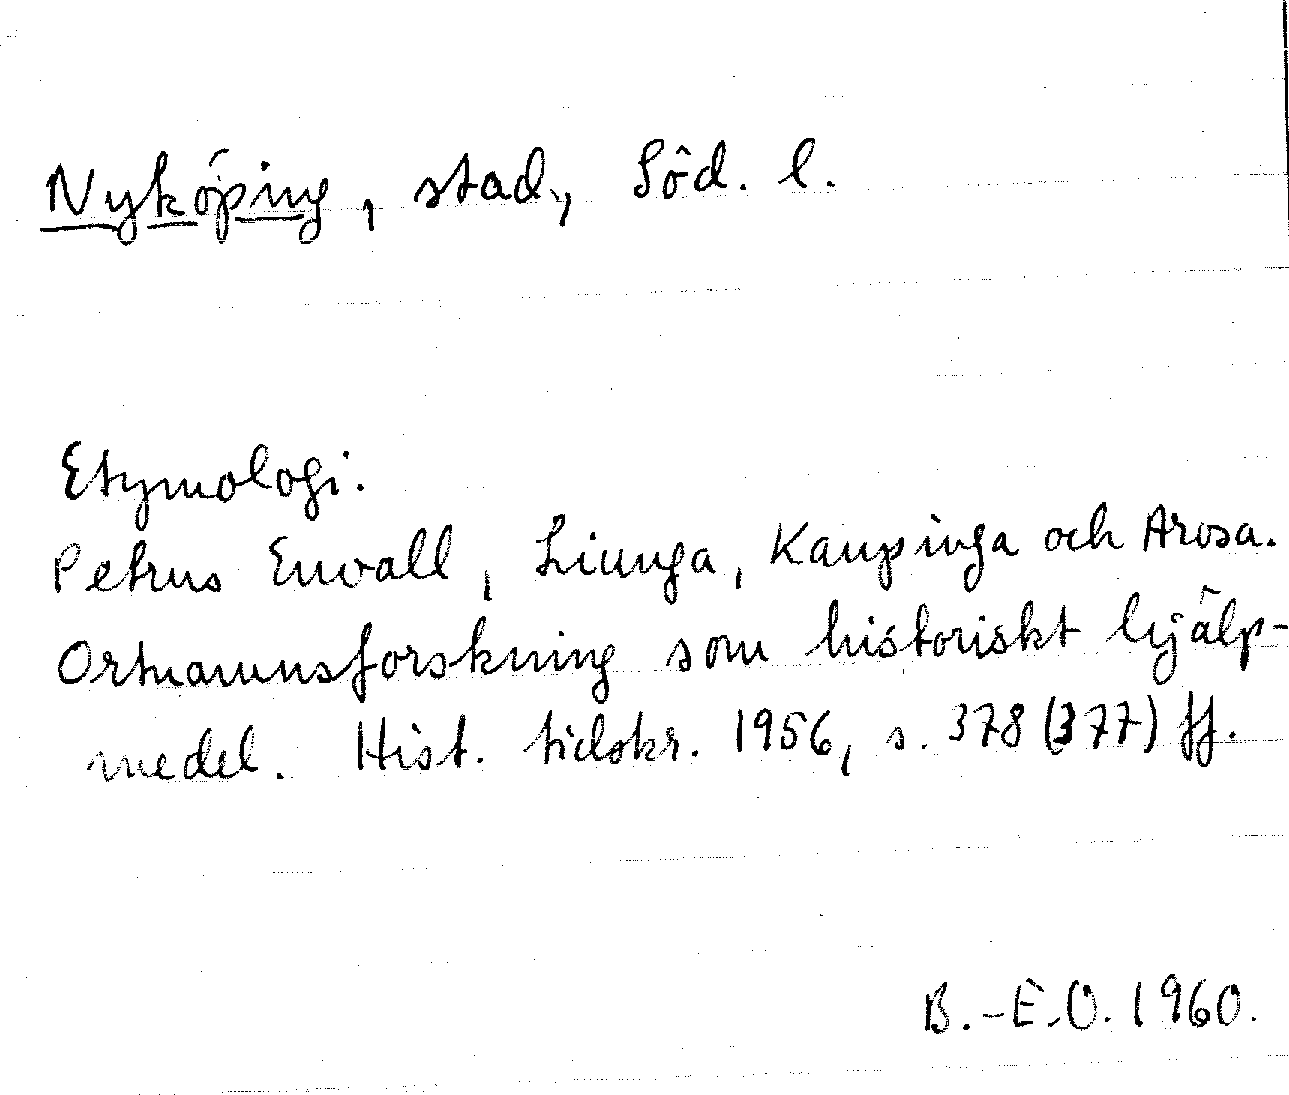 Nyköping, stad, Söd. l.
Etymologi.
Petrus Envall, Liunga, Kaupinga och Arosa.
Ortnamnsforskning som historiskt hjälp-
medel. Hist. tidskr. 1956, s. 378 (377) ff.
B.-E.O. 1960.